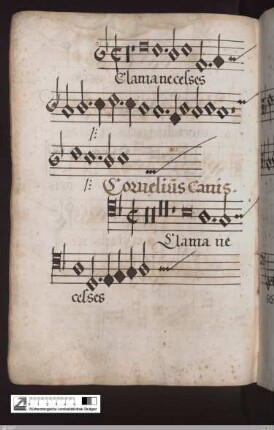 Clama ne cesses
/:
/: Cornelius Canis.
Clama ne
cesses
Württembergische Landesbibliothek Stuttgart